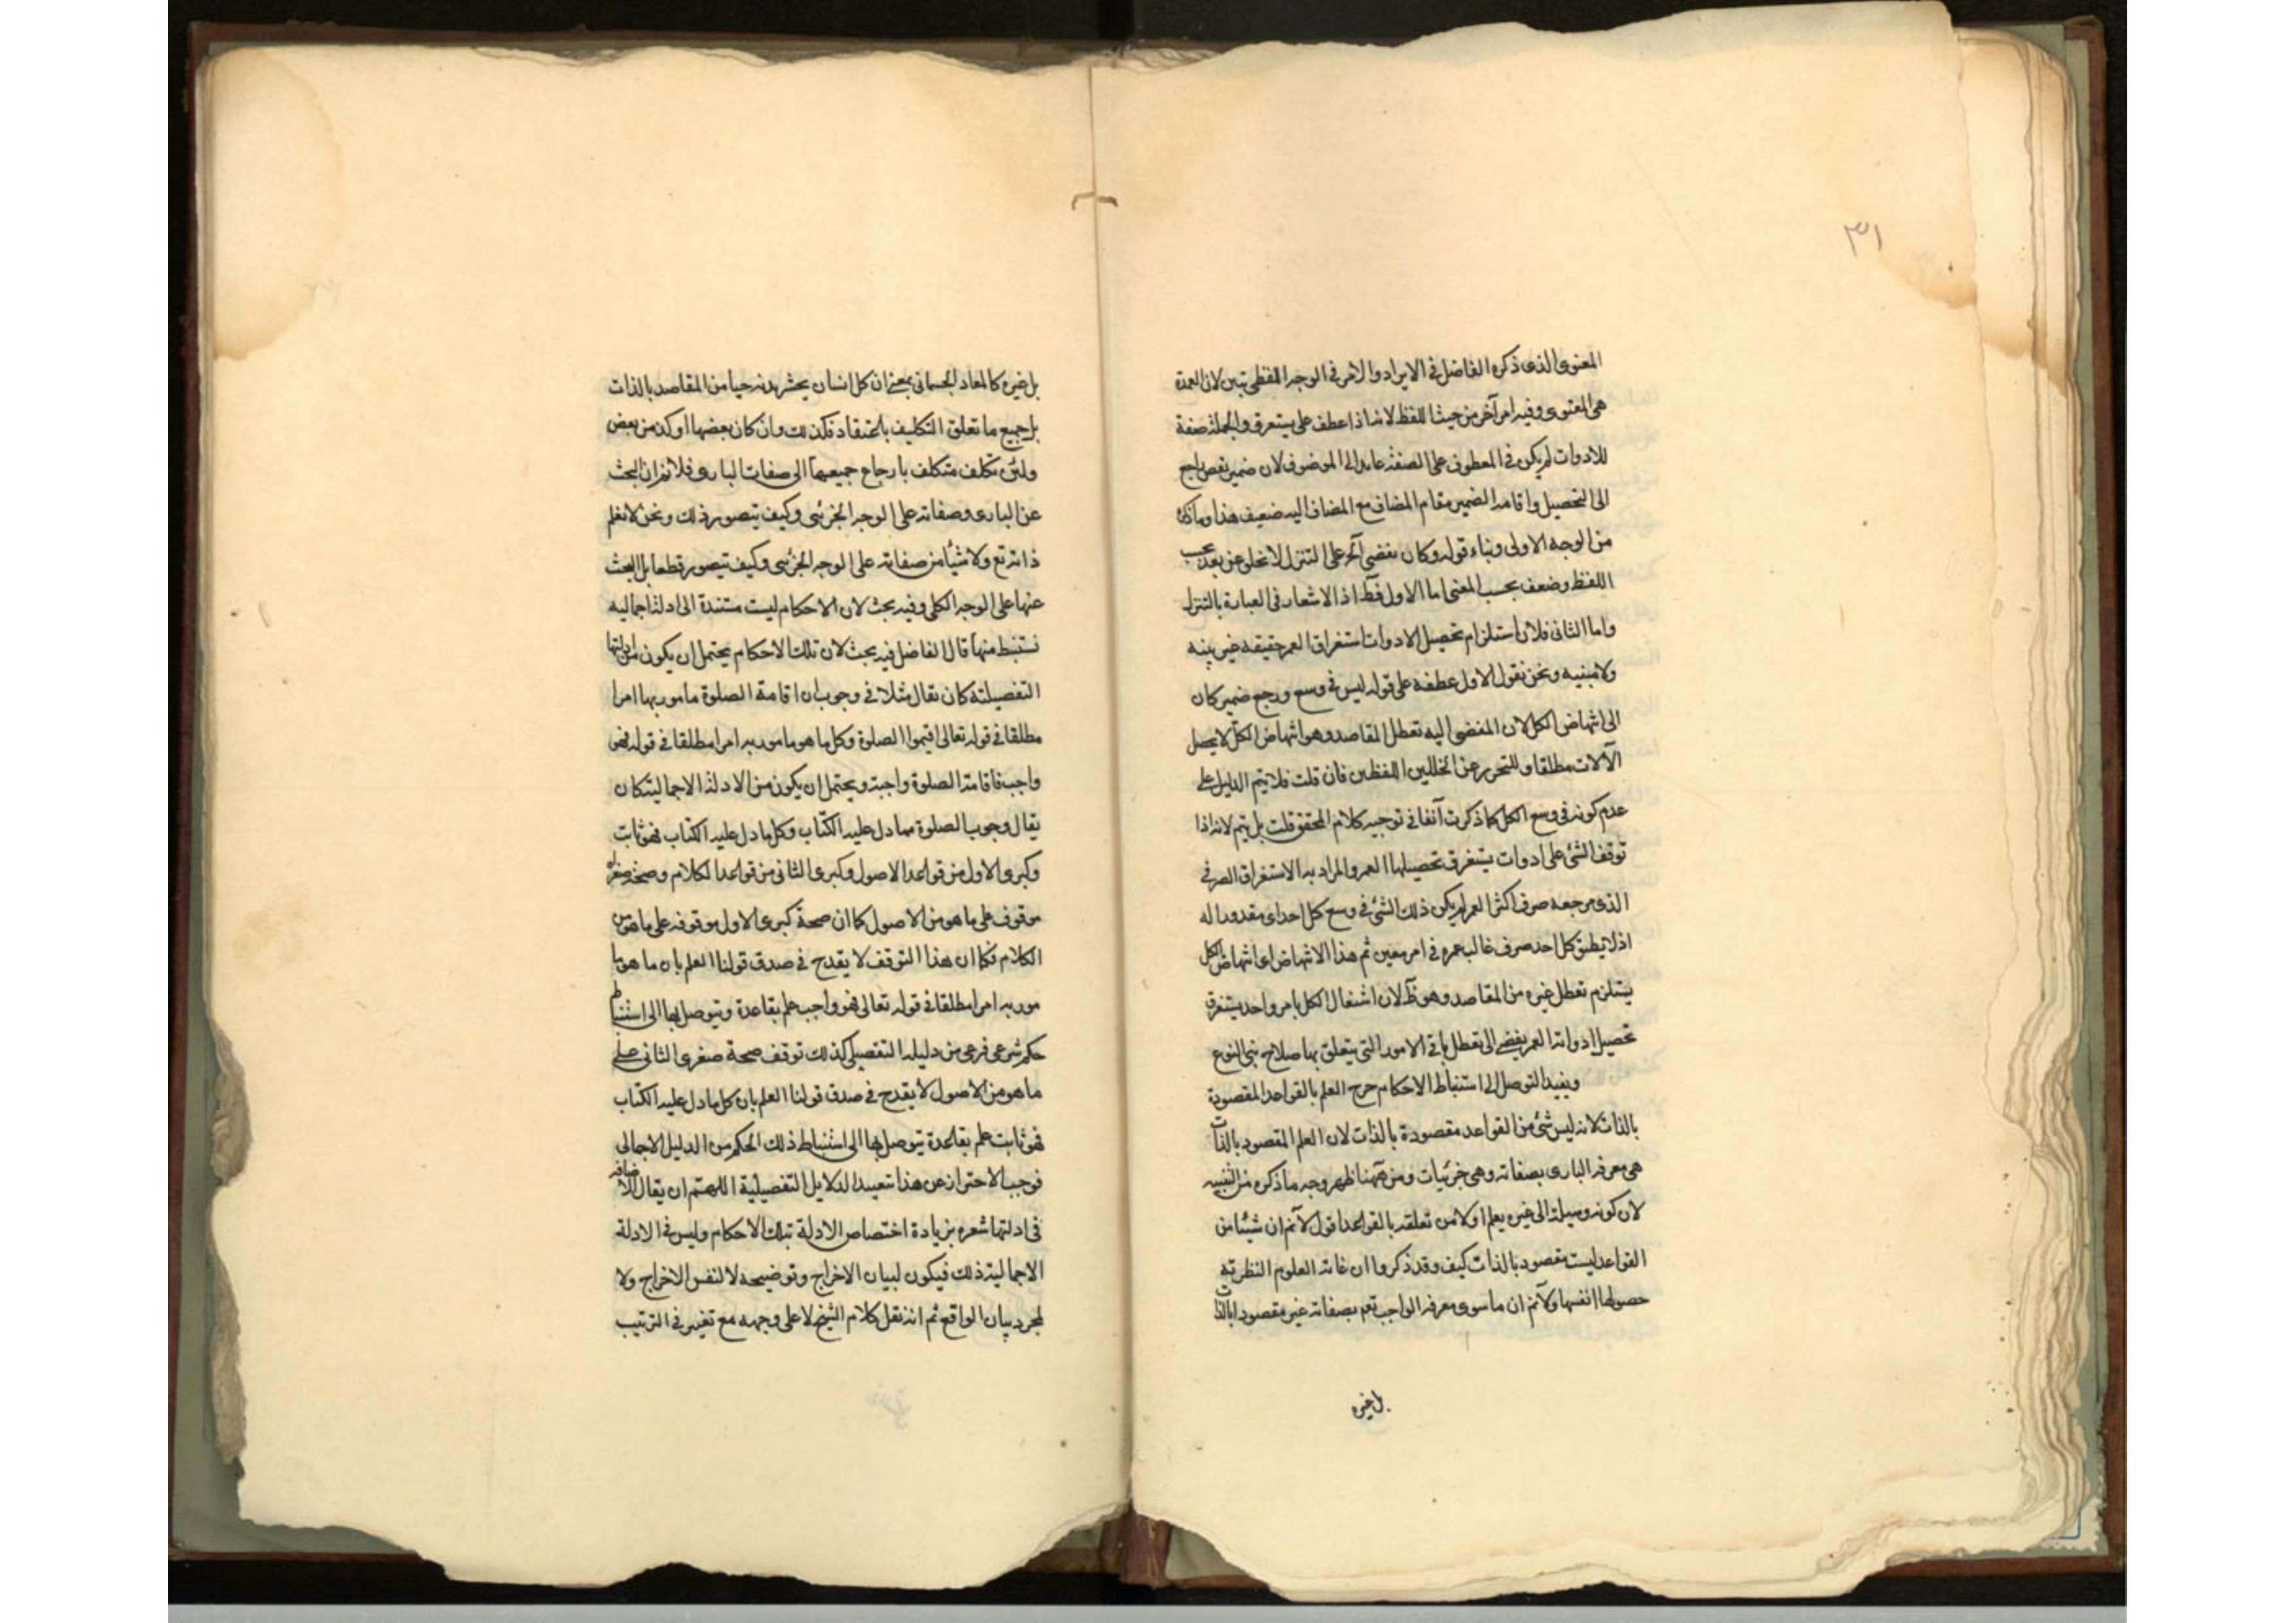 ٣١
المعنوى الذى ذكره الفاضل فى الايراد والامر فى الوجه اللفظى بين لان العمدة
هى المعنوى وفيه امر آخر من حيث اللفظ لانه اذا عطف على يستغرق والجملة صفة
للادوات لم يكن فى المعطوف على الصفة عايد الى الموصوف لان ضمير راجع
الى التحصيل واقامة الضمير مقام المضاف مع المضاف اليه ضعيف هذا وما ذكره
من الوجه الاولى وبناء قوله وكان يفضى آخر على التنزل لا يخلو عن بعد بحسب
اللفظ وضعف بحسب المعنى اما الاول فظ اذ الاشعار فى العبارة بالتنزل
واما الثانى فلان استلزام تحصيل الادوات استغراق العمر حقيقة غير بينه
ولا مبينه ونحن نقول الاول عطفه على قوله ليس فى وسع ورجع ضمير كان
الى انتهاض الكل لان المفضى اليه تعطل المقاصد وهو انتهاض الكل لا تحصيل
الآلات مطلقا وللتحرز عن الخللين اللفظين فان قلت فلا يتم الدليل على
عدم كونه فى وسع الكل كما ذكرت آنفا فى توجيه كلام المحقق قلت بل يتم لانه اذا
توقف الشئ على ادوات يستغرق تحصيلها العمر والمراد به الاستغراق العرفى
الذى مرجعه صرف اكثر العمر لم يكن ذلك الشئ فى وسع كل احد اى مقدورا له
اذ لا يطيق كل احد صرف غالب عمره فى امر معين ثم هذا الانتهاض اى انتهاض الكل
يستلزم تعطل غيره من المقاصد وهو ظ لان اشتغال الكل بامر واحد يستغرق
تحصيل ادواته العمر يفضى الى تعطل باقى الامور التى يتعلق بها صلاح بنى النوع
ويفيد التوصل الى استنباط الاحكام خرج العلم بالقواعد المقصودة
بالذات لانه ليس شئ من القواعد مقصودة بالذات لان العلم المقصود بالذات
هى معرفة البارى بصفاته وهى جزئيات ومن ههنا ظهر وجه ما ذكره من التنبيه
لان كونه وسيلة الى غيره يعلم اولا من تعلقه بالقواعد اقول لا نم ان شيئا من
القواعد ليست مقصود بالذات كيف وقد ذكروا ان غاية العلوم النظرية
حصولها انفسها ولا نم ان ما سوى معرفة الواجب تعم بصفاته غير مقصود بالذات
بل غيره
بل غيره كالمعاد الجسمانى بمعنى ان كل انسان يحشر بدنه حيا من المقاصد بالذات
بل جميع ما تعلق التكليف باعتقاد فكذلك وان كان بعضها اوكد من بعض
ولئن تكلف متكلف بارجاع جميعها الى صفات البارى فلا نم ان البحث
عن البارى وصفاته على الوجه الجزئى وكيف يتصور ذلك ونحن لا نعلم
ذاته تع ولا شيأ من صفاته على الوجه الجزئى وكيف يتصور قطعا بل البحث
عنها على الوجه الكلى وفيه بحث لان الاحكام ليست مستندة الى ادلة اجماليه
نستنبط منها قال الفاضل فيه بحث لان تلك الاحكام يحتمل ان يكون من ادلتها
التفصيلة كان يقال مثلا فى وجوب ان اقامة الصلوة مامور بها امرا
مطلقا فى قوله تعالى اقيموا الصلوة وكل ما هو مامور به امرا مطلقا فى قوله فهو
واجب فاقامة الصلوة واجبة ويحتمل ان يكون من الادلة الاجمالية كان
يقال وجوب الصلوة مما دل عليه الكتاب وكل ما دل عليه الكتاب فهو ثابت
وكبرى الاول من قواعد الاصول وكبرى الثانى من قواعد الكلام وصحة صغراه
موقوف على ما هو من الاصول كما ان صحة كبرى الاول موقوفه على ما هو من
الكلام فكما ان هذا التوقف لا يقدح فى صدق قولنا العلم بان ما هو ما
مور به امرا مطلقا فى قوله تعالى فهو واجب علم بقاعدة ويتوصل بها الى استنباط
حكم شرعى فرعى من دليله التفصيلى كذلك توقف صحة صغرى الثانى على
ما هو من الاصول لا يقدح فى صدق قولنا العلم بان كل ما دل عليه الكتاب
فهو ثابت علم بقاعدة يتوصل بها الى استنباط ذلك الحكم من الدليل الاجمالى
فوجب الاحتراز عن هذا بتقييد الدلايل التفصيلية اللهم ان يقال الاضافة
فى ادلتها شعره بزيادة اختصاص الادلة بتلك الاحكام وليس فى الادلة
الاجمالية ذلك فيكون لبيان الاخراج وتوضيحه لا لنفس الاخراج ولا
لمجرد بيان الواقع ثم انه نقل كلام الشيخ لا على وجهه مع تغيير فى الترتيب